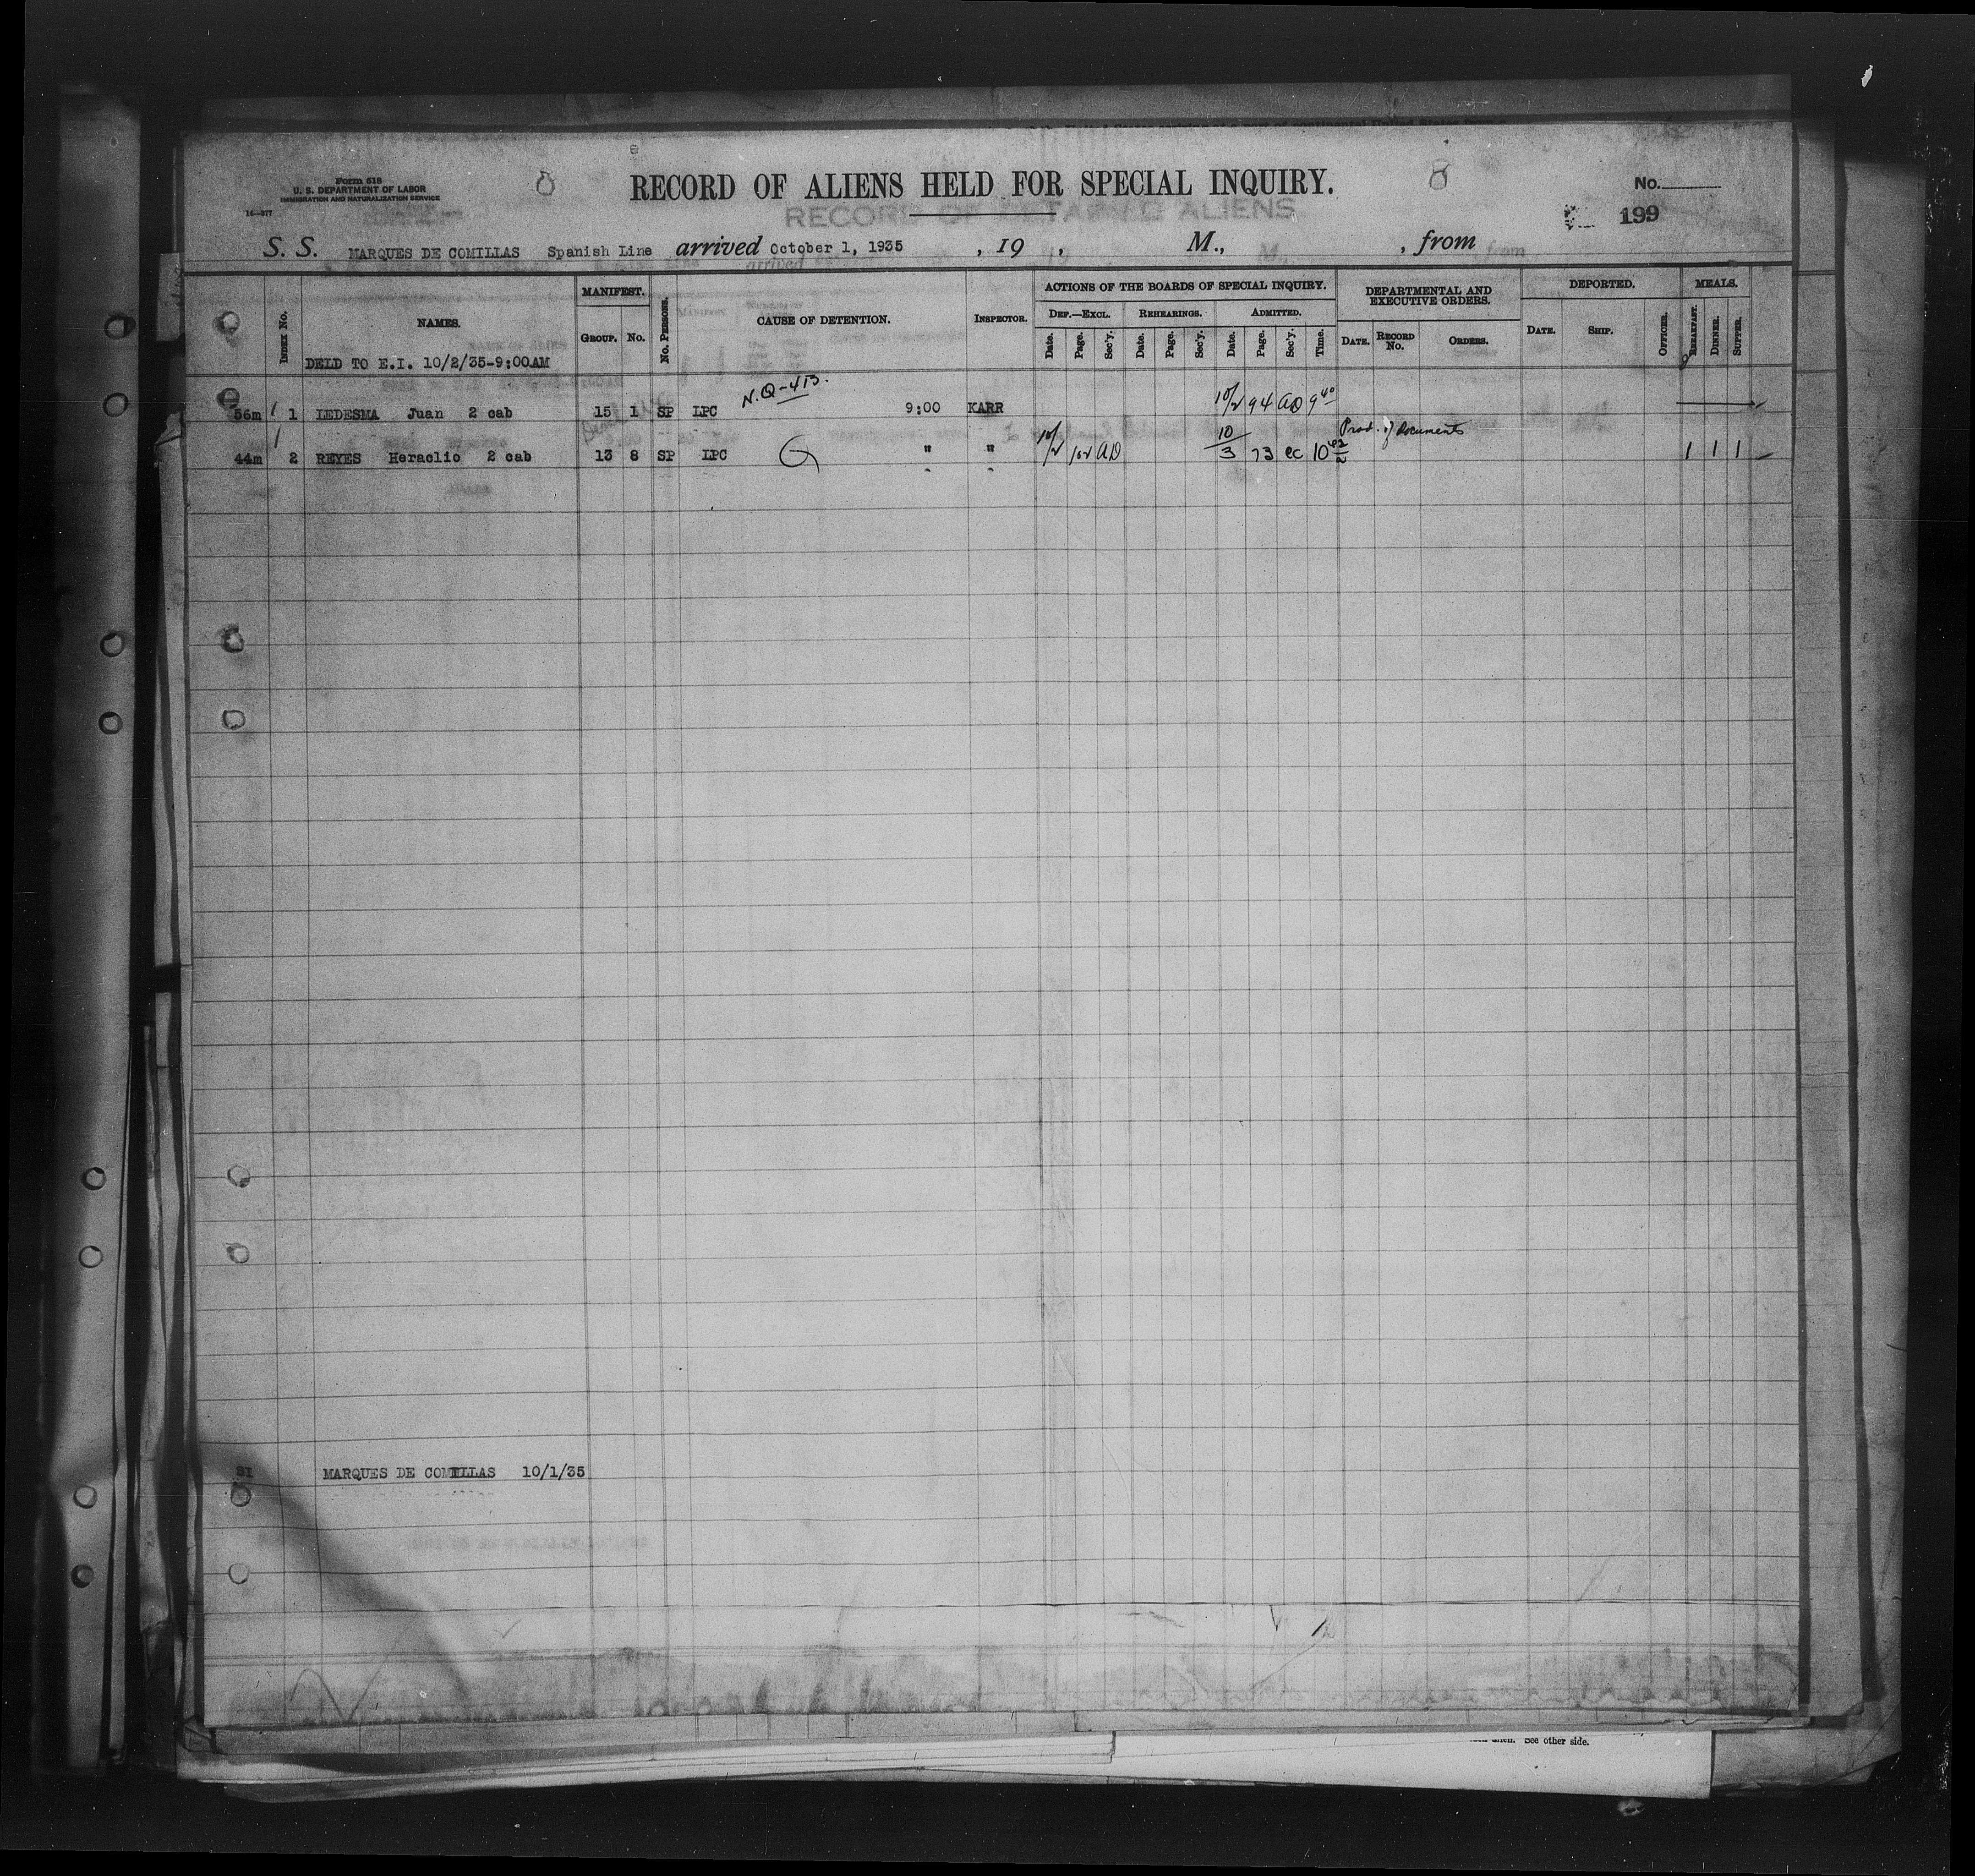 Form 618
U. S. DEPARTMENT OF LABOR
IMMIGRATION AND NATURALIZATION SERVICE
16—377
RECORD OF ALIENS HELD FOR SPECIAL INQUIRY.
RECORD OF DETAINED ALIENS
No.
199
S. S. MARQUES DE COMILLAS Spanish Line arrived October 1, 1935 , 19 , M., , from
INDEX No.
NAMES.
DELD TO E.I. 10/2/35-9:00AM
MANIFEST.
GROUP. No.
No. PERSONS.
CAUSE OF DETENTION.
INSPECTOR.
ACTIONS OF THE BOARDS OF SPECIAL INQUIRY.
DEF.—EXCL. REHEARINGS. ADMITTED.
Date. Page. Sec'y. Date. Page. Sec'y. Date. Page. Sec'y. Time.
DEPARTMENTAL AND EXECUTIVE ORDERS.
DATE. RECORD No. ORDERS.
DEPORTED.
DATE. SHIP. OFFICER.
MEALS.
BREAKFAST. DINNER. SUPPER.
N.Q-413.
56m 1 LEDESMA Juan 2 cab 15 1 SP LPC 9:00 KARR 10/2 94 AD 9 40
Prod. of documents
44m 2 REYES Heraclio 2 cab 13 8 SP LPC G " " 10/2 102 AD 10/3 73 ec 10 1 1 1
SI MARQUES DE COMILLAS 10/1/35
See other side.